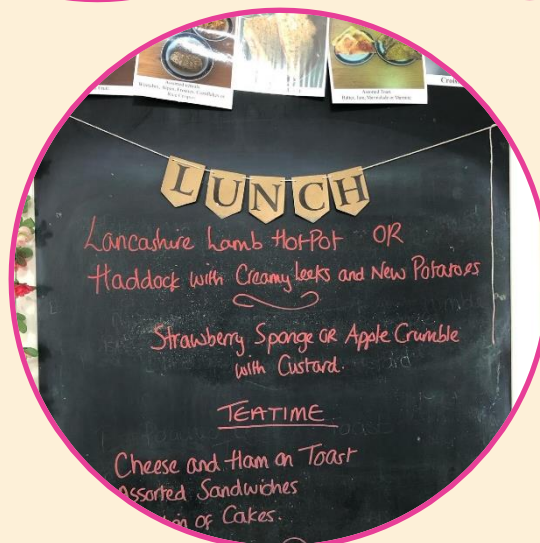 Assorted Toast
LUNCH
Lancashire Lamb HotPot OR
Haddock with Creamy Leeks and New Potatoes
Strawberry Sponge OR Apple Crumble
with Custard.
TEATIME
Cheese and Ham on Toast
Assorted Sandwiches
of Cakes.